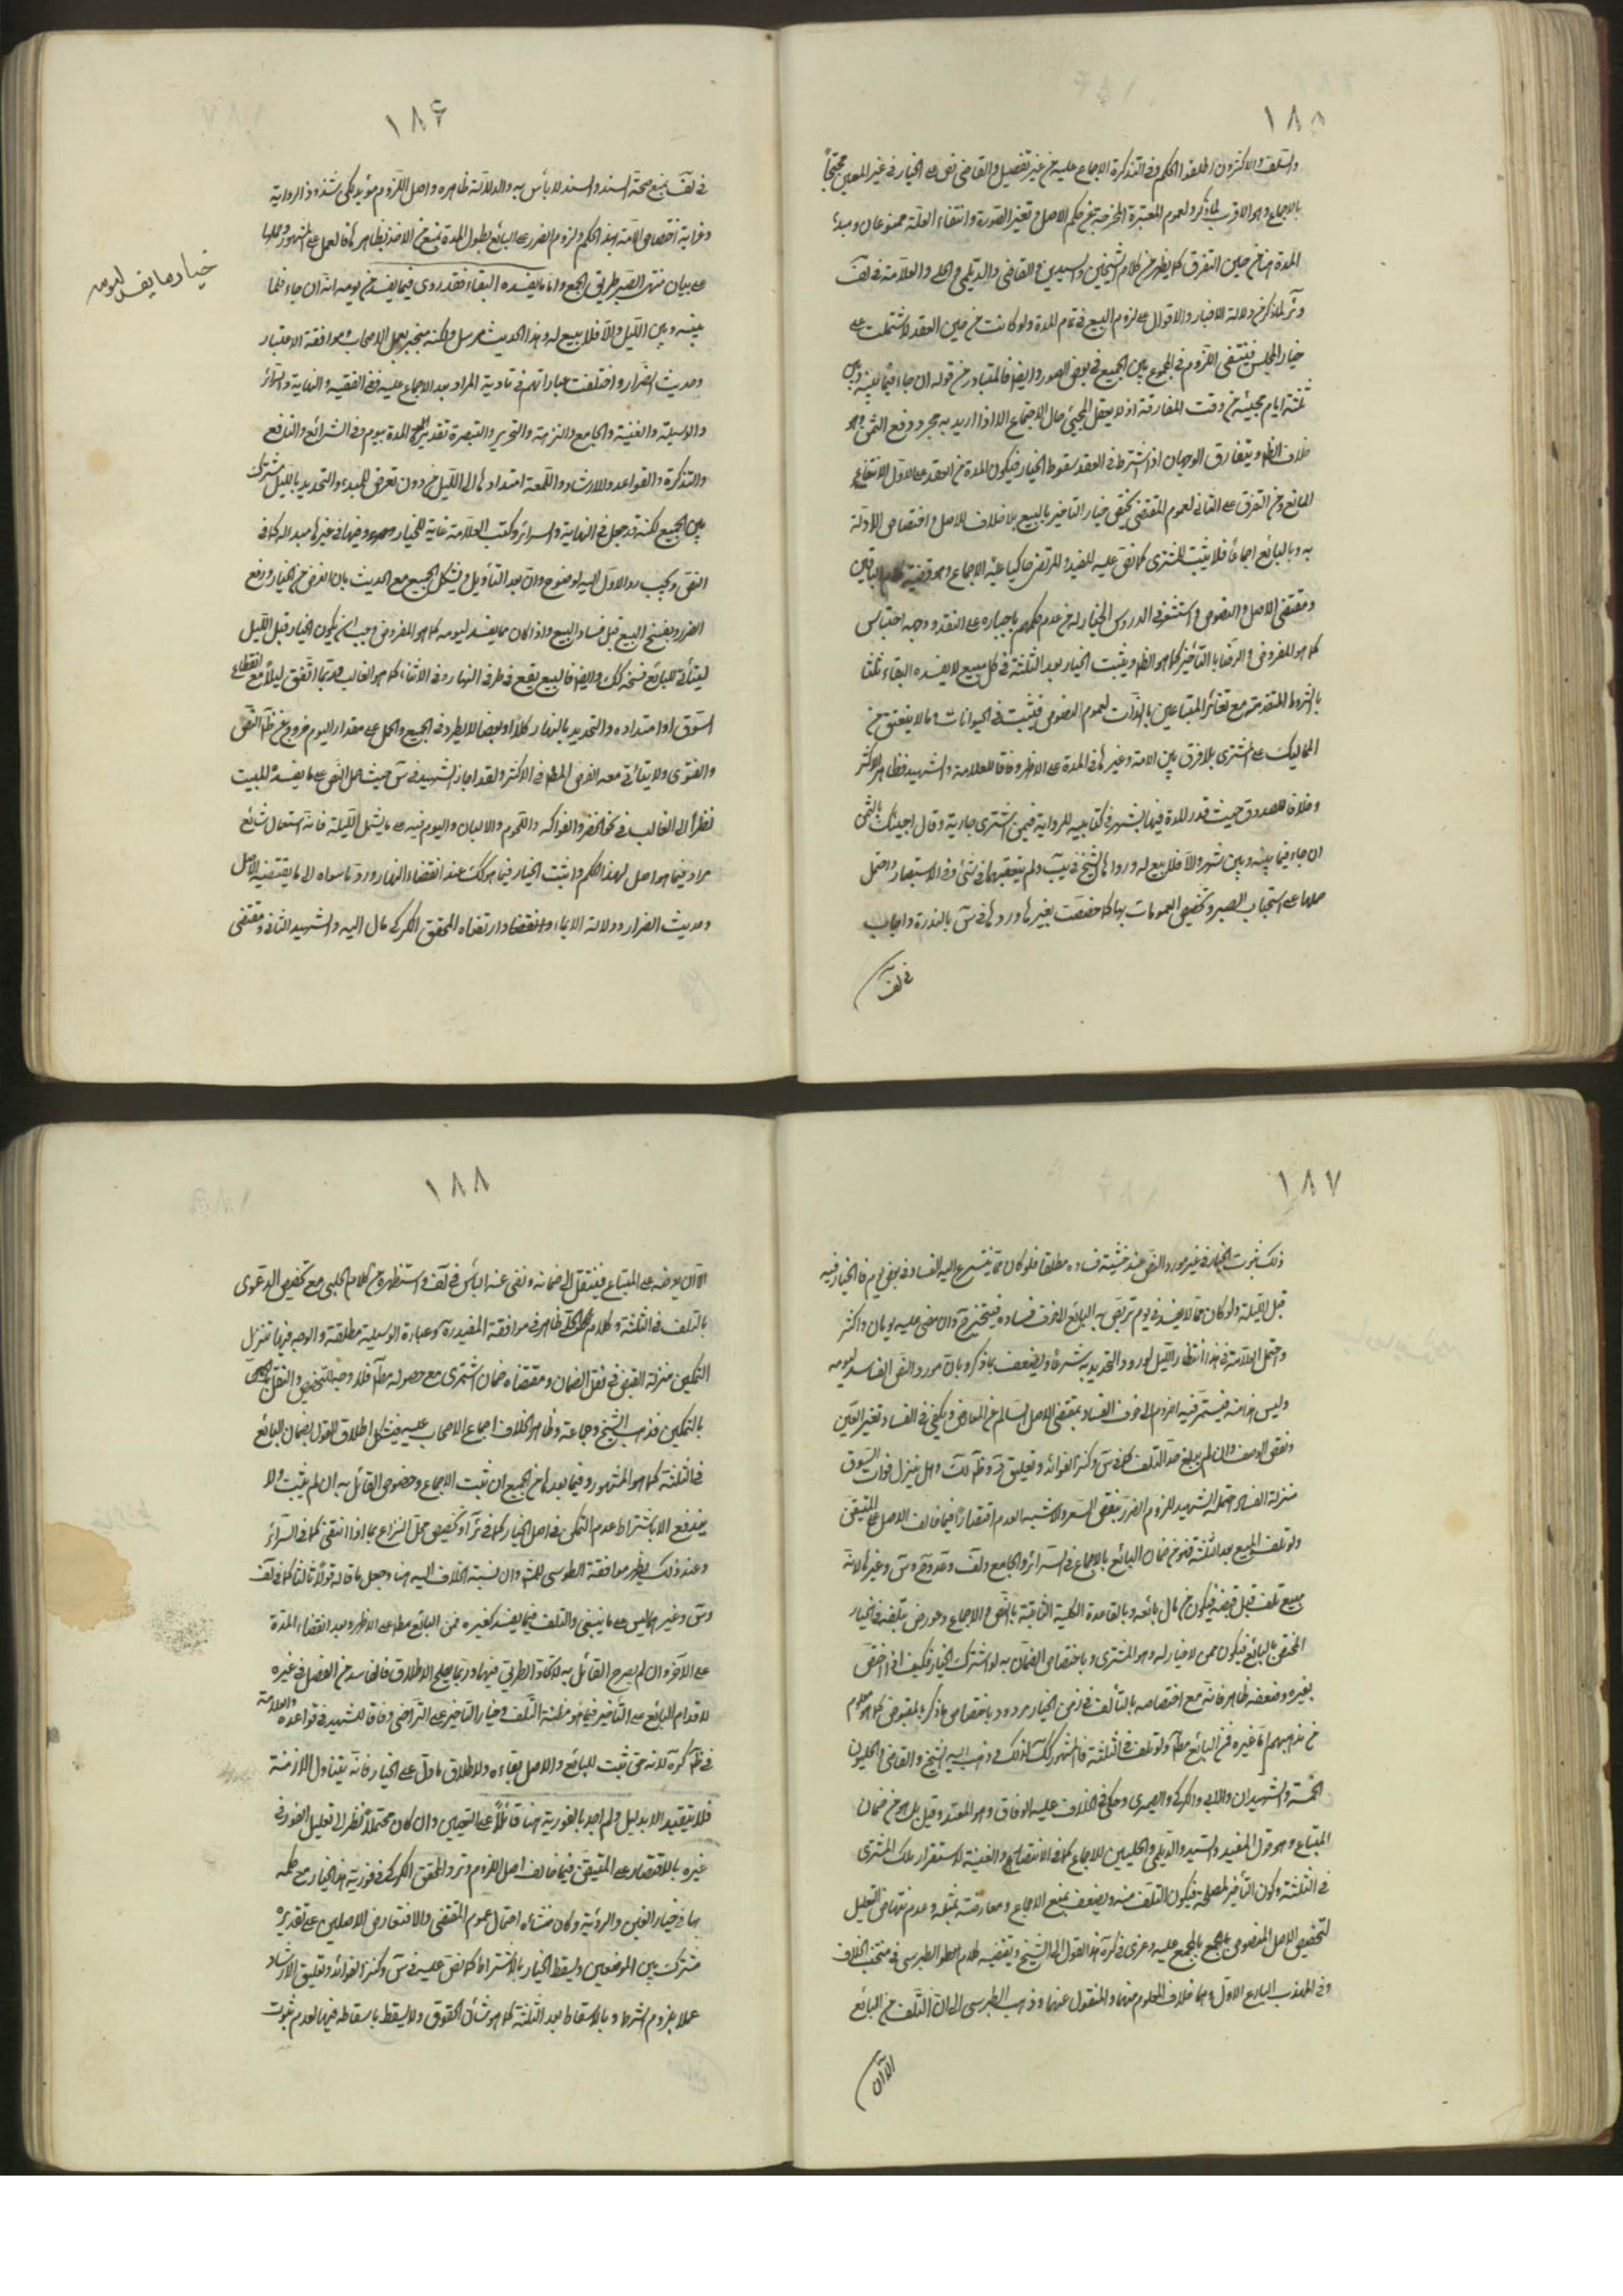 ١٨٥
والسلف والاكثرون اطلقوا الحكم وفي التذكرة الاجماع عليه من غير تفصيل والقاضي نفى الخيار في غير المعين محتجاً
بالاجماع وهو الاقرب لما ذكر ولعموم المعتبرة المخرجة عن حكم الاصل وتغير الصورة وانتفاء العلة ممنوعان ومبدء
المدة هنا من حين التفرق كما يظهر من كلام الشيخين والسيدين والقاضي والديلمي والحلي والعلامة في لف
وتر لما ذكر من دلالة الاخبار والاقوال على لزوم البيع في تمام المدة ولو كانت من حين العقد لاشتملت على
خيار المجلس فينتفى اللزوم في المجموع بين الجميع في بعض الصور وايضا فالمتبادر من قوله ان جاء فيما بينه وبين
ثلثة ايام مجيئه من وقت المفارقة اذ لا يعقل المجيئ حال الاجتماع الا اذا اريد به مجرد دفع الثمن وهو
خلاف الظ ويتفارق الوجهان اذا اشترط في العقد سقوط الخيار فيكون المدة من العقد على الاول لانتفاء
المانع ومن التفرق على الثاني لعموم المقتضي يختص خيار التاخير بالبيع بلا خلاف للاصل واختصاص الادلة
به وبالبائع اجماعا فلا يثبت للمشترى كما نص عليه المفيد والمرتضى حاكيا عليه الاجماع وهو قضية كلام الباقين
ومقتضى الاصل والنصوص واستشعر في الدروس الخيار له من عدم حكمهم باجباره على النقد ووجهه احتباس
كما هو المفروض والرضا بالتأخير كما هو الظ ويثبت الخيار بعد الثلثة في كل مبيع لا يفسده البقاء ثلثا
بالشروط المتقدمة مع تغاير المتبايعين بالذات لعموم النصوص فيثبت في الحيوانات وما لا ينعتق من
المماليك على المشترى بلا فرق بين الامة وغيرها في المدة على الاظهر وفاقا للعلامة والشهيد فظاهر الاكثر
وخلافا للصدوق حيث قدر المدة فيها بالشهر في كتابيه للرواية فيمن اشترى جارية وقال اجيئك بالثمن
ان جاء فيما بينه وبين شهر والا فلا بيع له ورواها الشيخ في يب ولم يتعقبها في شئ وفي الاستبصار واحتمل
حملها على استحباب الصبر وتخصيص العمومات بها كما خصصت بغيرها وردها في س بالندرة واجاب
في لف
١٨٦
في لف بمنع صحة السند والسند لا بأس به والدلالة ظاهره واصل اللزوم مؤيد لكن شذوذ الرواية
وغرابة اختصاص الامة بهذا الحكم ولزوم الضرر على البائع بطول المدة تمنع من الاخذ بظاهرها فالعمل على المشهور وحملها
على بيان منتهى الصبر طريق الجمع واما ما يفسده البقاء فقد روى فيما يفسد من يومه انه ان جاء فيما
بينه وبين الليل والا فلا بيع له وهذا الحديث مرسل ولكنه منجبر بعمل الاصحاب وموافقة الاعتبار
وحديث الضرار واختلفت عباراتهم في تادية المراد بعد الاجماع عليه ففي الفقيه والنهاية والسرائر
والوسيلة والغنية والجامع والنزهة والتحرير والتبصرة تقدير المدة بيوم وفي الشرائع والنافع
والتذكرة والقواعد والارشاد واللمعة امتدادها الى الليل من دون تعرض للمبدء والتحديد بالليل مشترك
بين الجميع لكنه قد جعل في النهاية والسرائر وكتب العلامة غاية للخيار وفي غيرها مبدا له كما في
النص ويجب رد الاول اليه لوضوحه وان بعد التأويل ويشكل الجميع مع الحديث بان الغرض من الخيار دفع
الضرر بفسخ البيع قبل فساد المبيع واذا كان مما يفسد ليومه كما هو المفروض وجب ان يكون الخيار قبل الليل
ليتأتى للبائع فسخه كك وايضا فالبيع يقع في طرفي النهار وفي الاثناء كما هو الغالب وربما اتفق ليلاً مع انقطاع
السوق او امتداده والتحديد بالنهار كلا او بعضا لا يطرد في الجميع والحمل على مقدار اليوم خروج عن ظاهر النص
والفتوى ولا يتأتى معه الغرض المط في الاكثر ولقد اجاز الشهيد في س حيث حمل النص على ما يفسده المبيت
نظرا الى الغالب في نحو الخضر والفواكه واللحوم والالبان واليوم فيه على ما يشمل الليلة فانه استعمال شائع
مراد فيما هو اصل لهذا الحكم واثبت الخيار فيما هو كك عند انقضاء النهار ورد ما سواه الى ما يقتضيه الاصل
وحديث الضرار ودلالة الايماء وارتضاه المحقق الكركي مال اليه والشهيد الثاني ومقتضى
خيار ما يفسد ليومه
١٨٧
ذلك ثبوت الخيار في غير مورد النص عند خشية فساده مطلقا فلو كان مما يتسرع اليه الفساد في بعض يوم فالخيار فيه
قبل الليلة ولو كان مما لا يفسد في يوم تربص به البائع الا خوف فساده فيتخير ح وان مضى عليه يومان واكثر
واحتمل العلامة في هذا انتظار الليل لورود التحديد به شرعا ويضعف بما ذكر وبان مورد النص الفاسد ليومه
وليس هذا منه فيستمر فيه اللزوم الى خوف الفساد بمقتضى الاصل السالم عن المعارض ويكفي في الفساد تغير العين
ونقص الوصف وان لم يبلغ حد التلف كما في س وكنز الفوائد وتعليق وهل ينزل فوات السوق
منزلة الفساد احتمله الشهيد للزوم الضرر بنقص السعر والاشبه العدم اقتصارا فيما خالف الاصل على المتيقن
ولو تلف المبيع بعد الثلثة فهو من ضمان البائع بالاجماع في السرائر والجامع ولف وغيرها لانه
مبيع تلف قبل قبضه فيكون من مال بائعه وبالقاعدة الكلية الثابتة بالنص والاجماع وعورض بتلفه في الخيار
المختص بالبائع فيكون ممن لا خيار له وهو المشترى وباختصاص الضمان به لو اشترك الخيار فكيف اذا اختص
بغيره وضعفه ظاهر فانه مع اختصاصه بالتالف في زمن الخيار مردود باختصاص ما ذكر بالمقبوض كما هو معلوم
من مذهبهم اما غيره فمن البائع مطلقا ولو تلف في الثلثة فالمشهور كك ذهب اليه الشيخ والقاضي والحليون
الخمسة والشهيدان والابي والكركي والصيمرى وحكى في الخلاف عليه الوفاق وهو المعتمد وقيل بل هو من ضمان
المبتاع وهو قول المفيد والسيد والديلمي والحلبيين للاجماع كما في الانتصار والغنية لاستقرار ملك المشترى
في الثلثة وكون التأخير لمصلحته فيكون التلف منه ويضعف بمنع الاجماع ومعارضته بمثله وعدم نهوض التعليل
لتخصيص الاصل المنصوص المجمع عليه وعزى في كره هذا القول الى الشيخ ويقتضيه كلام الطبرسي في منتخب الخلاف
وفي المهذب البارع الاول وهما خلاف المعلوم منهما والمنقول عنهما وذهب الطبرسي الى ان التلف من البائع
الا ان
١٨٨
الا ان يعرضه على المبتاع فينتقل الى ضمانه ونفى عنه البأس في لف واستظهره من كلام الحلبي مع تخصيص الدعوى
بالتلف في الثلثة وكلام الحلبي ظاهر في موافقة المفيد وعبارة الوسيلة مطلقة والوجه فيها تنزيل
التمكين منزلة القبض في نقل الضمان ومقتضاه ضمان المشترى مع حصوله مطلقا فلا وجه للتخصيص والنقل
بالتمكين مذهب الشيخ وجماعة وظاهر الخلاف اجماع الاصحاب عليه فيشكل اطلاق القول بضمان البائع
في الثلثة كما هو المشهور وفيما بعدها من الجميع ان ثبت الاجماع وخصوص القائل به ان لم يثبت ولا
يندفع الا باشتراط عدم التمكين في اصل الخيار كما في كرة او تخصيص محل النزاع بما اذا انتفى كما في السرائر
وعند ذلك يظهر موافقة الطوسي للمش وان نسبة الخلاف اليه هنا وجعل ما قاله قولا ثالثا كما في لف
وس وغيرهما ليس على ما ينبغي والتلف فيما يفسد كغيره فمن البائع مطلقا على الاظهر وبعد انقضاء المدة
على الاخر وان لم يصرح القائل به لاتحاد الطريق فيهما وربما يصلح الاطلاق فالفاسد من الفصل في غيره
لاقدام البائع على التأخير فيما هو مظنة التلف وخيار التأخير على التراخي وفاقا للشهيد في قواعده والعلامة
في ظ كرة لانه حق ثبت للبائع والاصل بقاءه ولاطلاق ما دل على الخيار فانه يتناول الازمنة
فلا يتقيد الا بدليل ولم اجد بالفورية هنا قائلاً على التعيين وان كان محتملاً نظرا الى تعليل الفور في
غيره بالاقتصار على المتيقن فيما خالف اصل اللزوم وتردد المحقق الكركي في فورية هذا الخيار مع حكمه
بها في خيار الغبن والرؤية وكان منشاه احتمال عموم المقتضي والا فتعارض الاصلين على تقديره
مشترك بين الموضعين ويسقط الخيار بالاشتراط كما نص عليه في س وكنز الفوائد وتعليق الارشاد
عملا بلزوم الشرط وبالاسقاط بعد الثلثة كما هو شأن الحقوق ولا يسقط باسقاطه فيها لعدم ثبوت